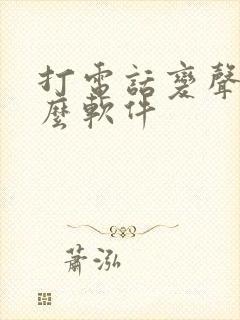 打電話變聲
麼軟件
蕭泓